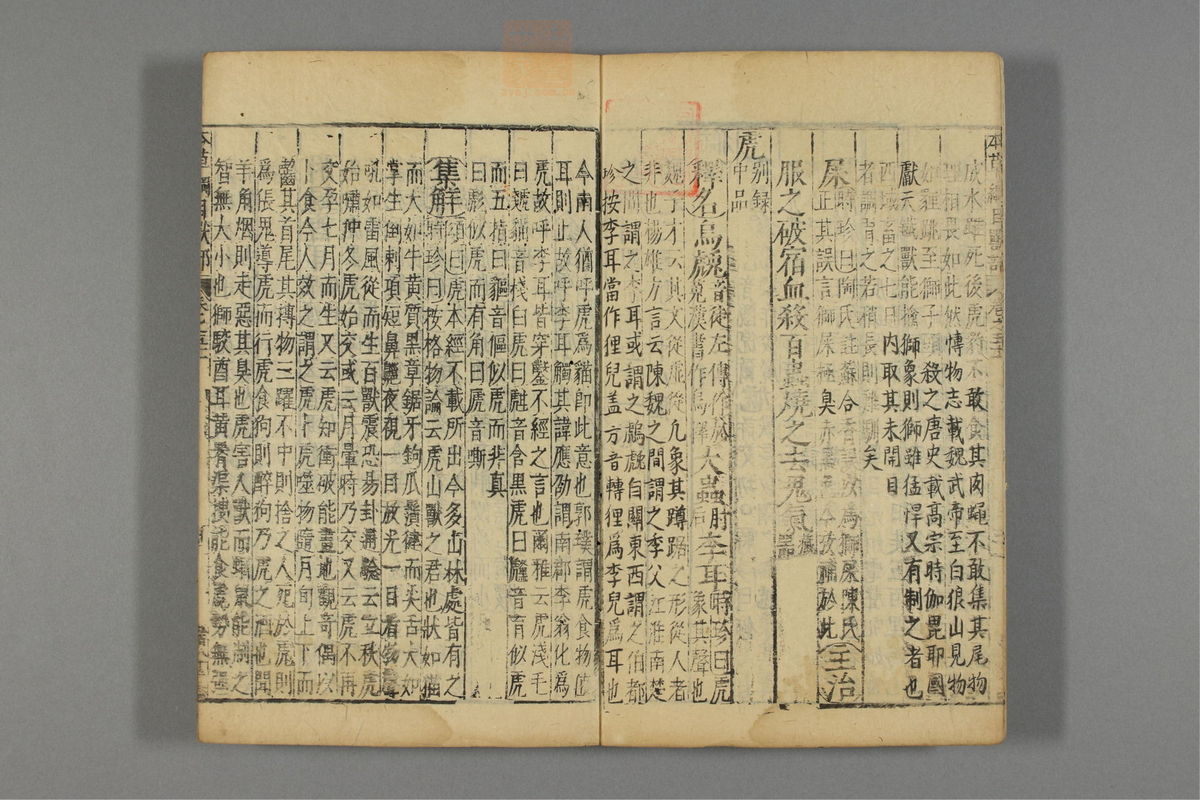 本草綱目獸部
威水雖死後虎豹不敢食其肉蠅不敢集其尾物
理相畏如此然博物志載魏武帝至白狼山見物
如貍跳至獅子頭殺之唐史載高宗時伽毘耶國
獻天鐵獸能擒獅象則獅雖猛悍又有制之者也
西域畜之七日內取其未開目
者調習之若稍長則難馴矣
屎時珍曰陶氏註蘇合香誤以為獅屎陳氏
正其誤言獅屎極臭赤黑色今考補於此主治
服之破宿血殺百蟲燒之去鬼氣藏器
虎別錄中品
釋名烏䖘音徒左傳作於
菟漢書作烏檡大蟲肘后李耳時珍曰虎
象其聲也
魏子才云其文從虍從几象其蹲踞之形從人者
非也楊雄方言云陳魏之間謂之李父江淮南楚
之間謂之李耳或謂之䖘自關東西謂之伯都
珍按李耳當作狸兒蓋方音轉狸為李兒為耳也
今南人猶呼虎為貓即此意也郭璞謂虎食物值
耳則止故呼李耳觸其諱應劭謂南郡李翁化為
虎故呼李耳皆穿鑿不經之言也爾雅云虎淺毛
曰虦貓音棧白虎曰甝音含黑虎曰虪音育似虎
而五指曰貙音傴似虎而非真
曰彪似虎而有角曰虒音嘶
集解頌曰虎本經不載所出今多山林處皆有之
時珍曰按格物論云虎山獸之君也狀如猫
而大如牛黃質黑章鋸牙鉤爪鬚健而尖舌大如
掌生倒刺項短鼻齆夜視一目放光一目看物聲
吼如雷風從而生百獸震恐易卦通驗云立秋虎
始嘯仲冬虎始交或云月暈時乃交又云虎不再
交孕七月而生又云虎知衝破能畫地觀奇偶以
卜食今人效之謂之虎卜虎噬物隨月旬上下而
齧其首尾其搏物三躍不中則捨之人死於虎則
為倀鬼導虎而行虎食狗則醉狗乃虎之酒也聞
羊角烟則走惡其臭也虎害人獸而蝟鼠能制之
智無大小也獅駮酋耳黃腰渠搜能食虎勢無強
本草綱目獸部